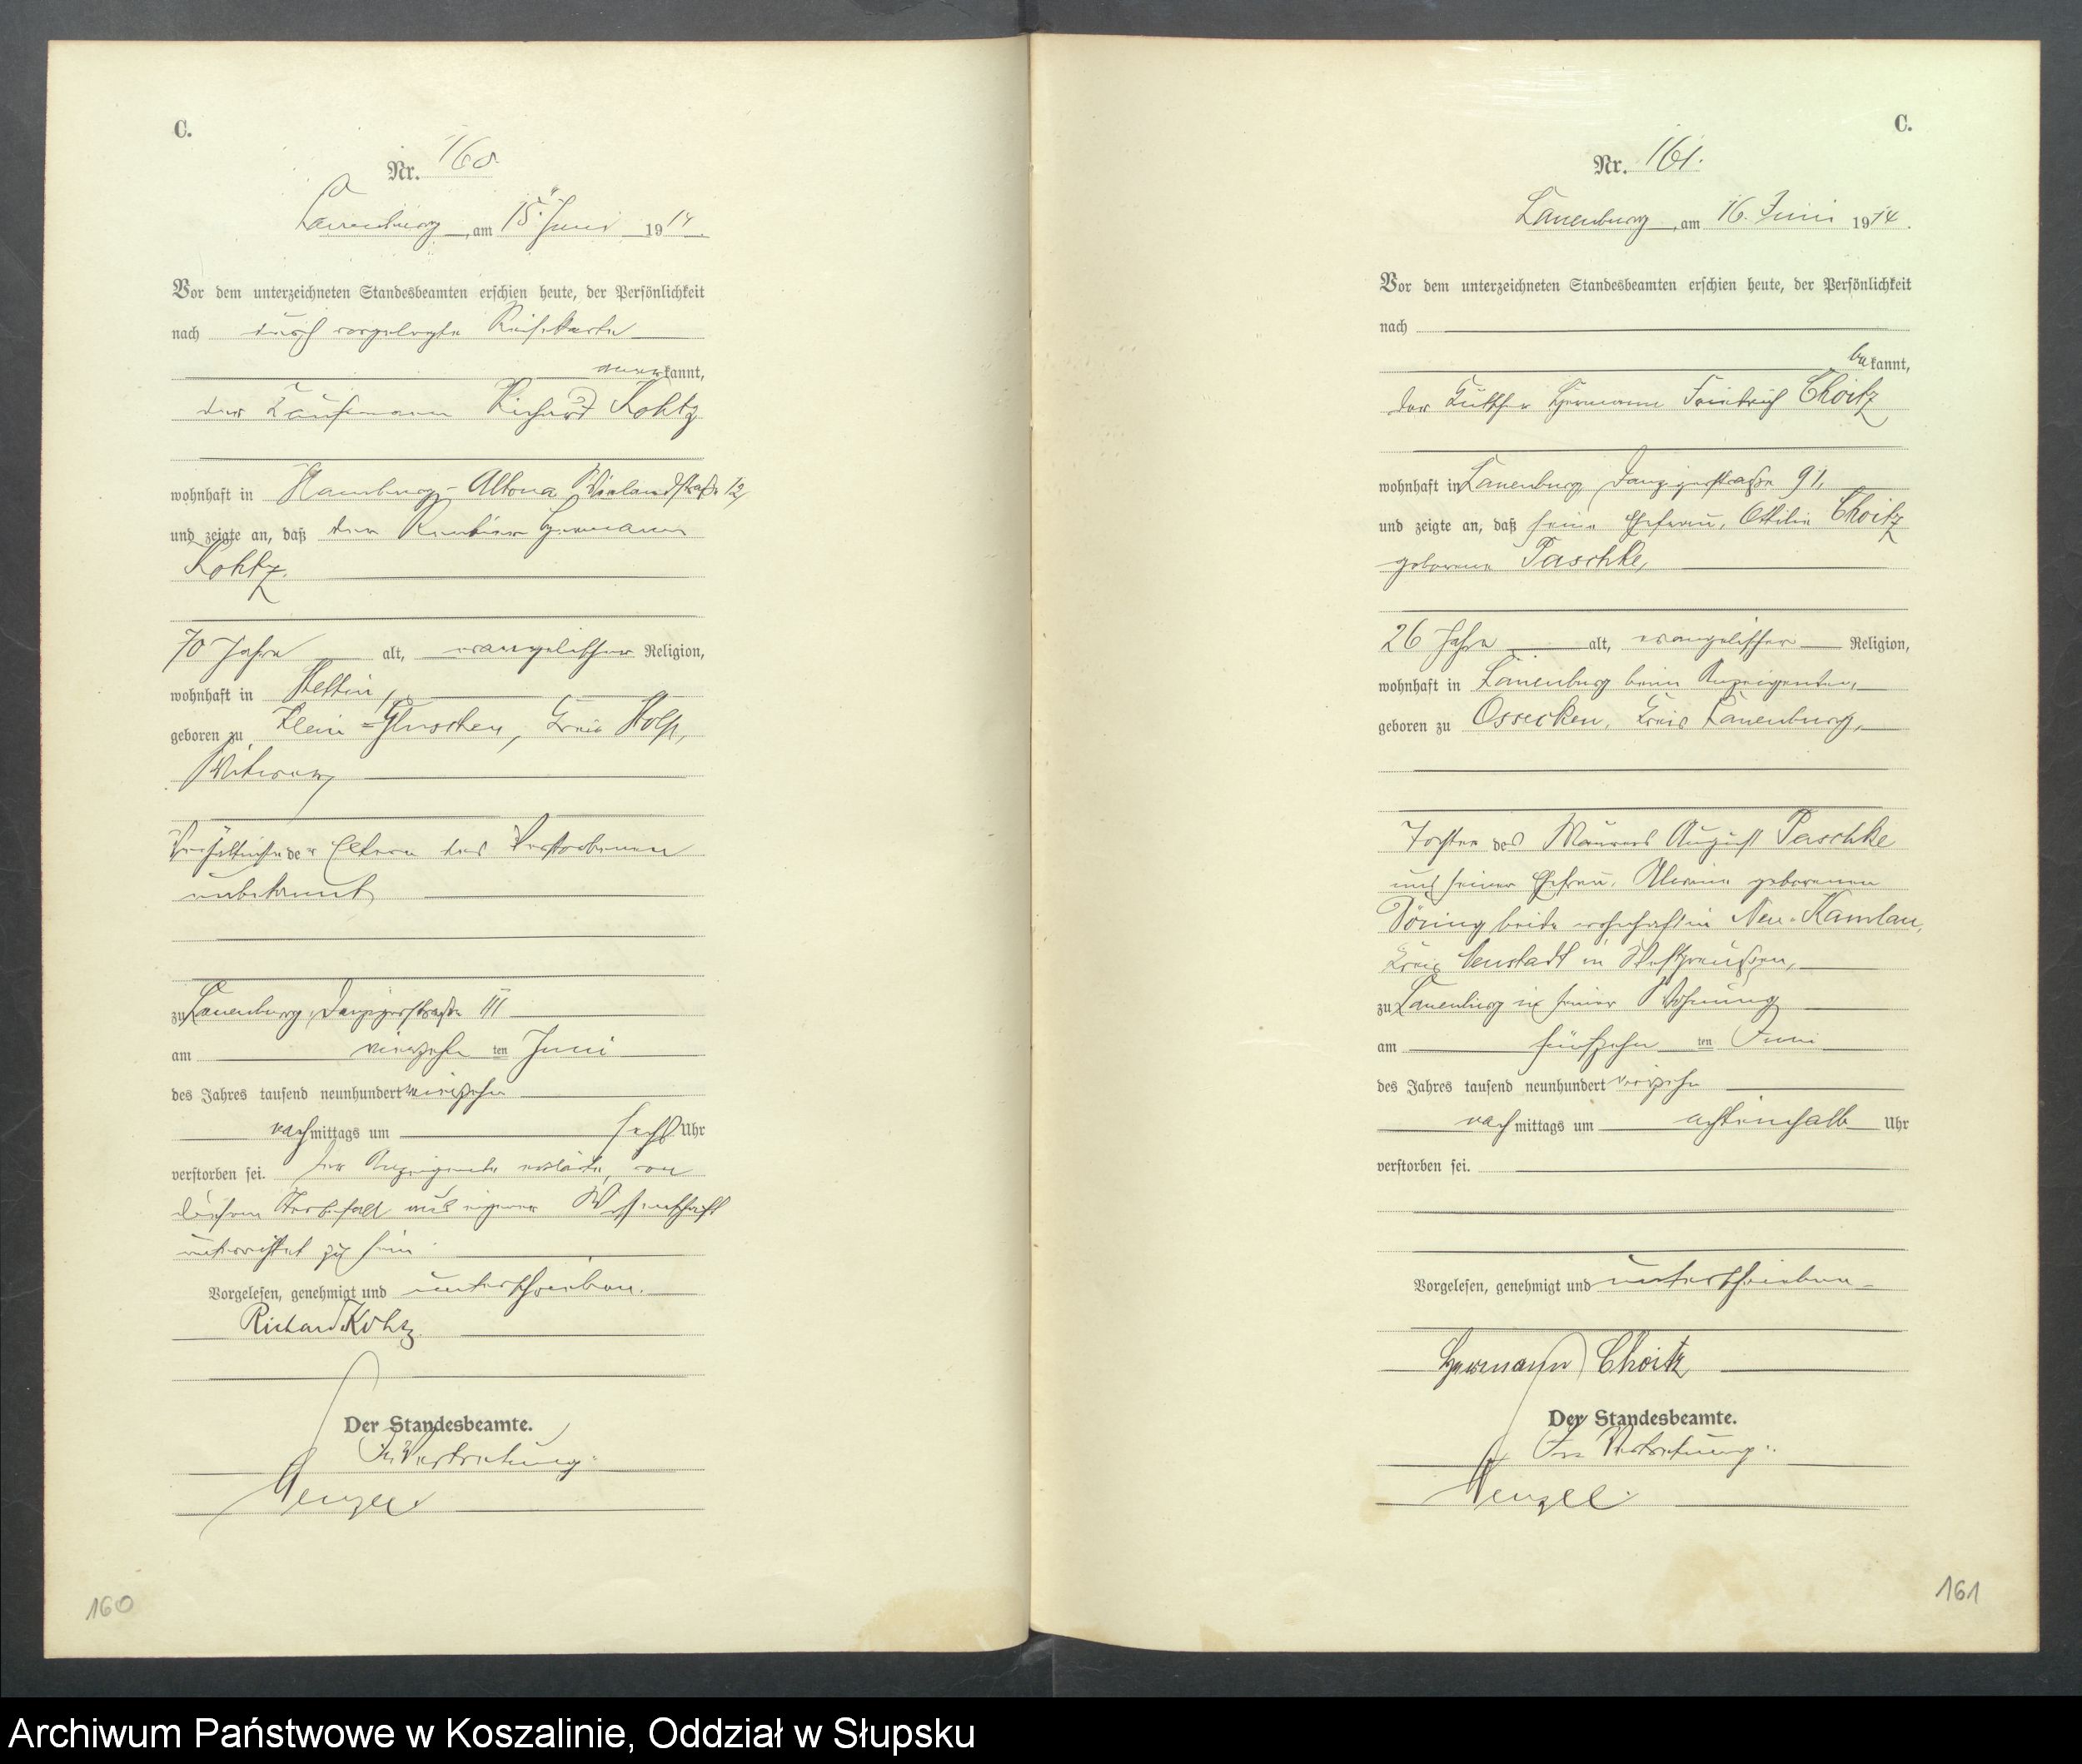 C.
Nr. 160.
Lauenburg, am 15. Juni 1914.
Vor dem unterzeichneten Standesbeamten erschien heute, der Persönlichkeit
nach durch vorgelegte
kannt,
der Kaufmann Richard Kohtz
wohnhaft in Hamburg-Altona Wielandstraße 12,
und zeigte an, daß der Rentier Hermann
Kohtz.
70 Jahre alt, evangelischer Religion,
wohnhaft in Stettin,
geboren zu Klein-Gluschen, Kreis Stolp,
Witwer
Verhältnisse der Eltern des Verstorbenen
unbekannt
zu Lauenburg, Danzigerstraße 111
am vierzehnten Juni
des Jahres tausend neunhundert vierzehn
nachmittags um sechs Uhr
verstorben sei. Der Anzeigende erklärte, von
diesem Sterbefall aus eigener Wissenschaft
unterrichtet zu sein.
Vorgelesen, genehmigt und unterschrieben.
Richard Kohtz
Der Standesbeamte.
In Vertretung.
Wenzel
160
C.
Nr. 161.
Lauenburg, am 16. Juni 1914.
Vor dem unterzeichneten Standesbeamten erschien heute, der Persönlichkeit
nach
bekannt,
der Hermann Friedrich Choitz
wohnhaft in Lauenburg, Danzigerstraße 91,
und zeigte an, daß seine Ehefrau, Ottilie Choitz
geborene Paschke,
26 Jahre alt, evangelischer Religion,
wohnhaft in Lauenburg beim Anzeigenden,
geboren zu Ossecken, Kreis Lauenburg,
Tochter des Maurers August Paschke
und seiner Ehefrau, geborenen
Döring beide wohnhaft in Neu-Kamlau,
Kreis Neustadt in Westpreußen,
zu Lauenburg in seiner Wohnung
am fünfzehnten Juni
des Jahres tausend neunhundert vierzehn
nachmittags um achteinhalb Uhr
verstorben sei.
Vorgelesen, genehmigt und unterschrieben
Hermann Choitz
Der Standesbeamte.
In Vertretung.
Wenzel.
161
Archiwum Państwowe w Koszalinie, Oddział w Słupsku